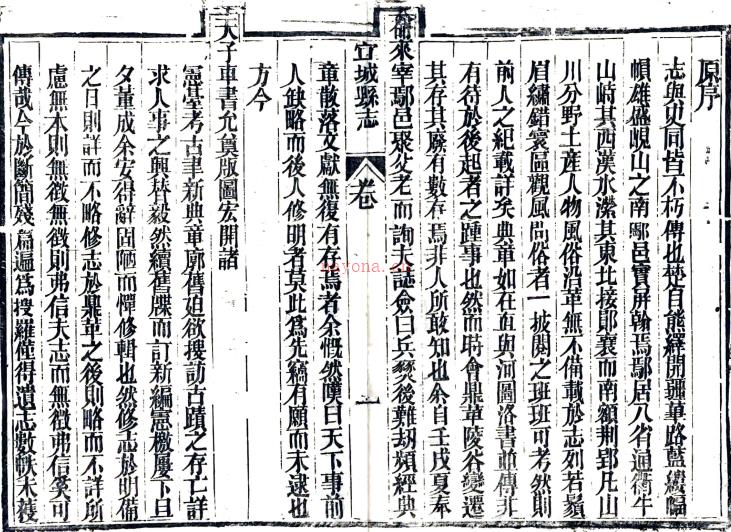 原序
志與史同皆不朽傳也楚自熊繹開疆篳路藍縷幅
幀雄盛峴山之南鄢邑實屏翰焉鄢居八省通衢牛
山峙其西漢水瀠其東北接鄖襄而南額荆郢凡山
川分野土産人物風俗沿革無不備載於志列若鬚
眉繡錯寰區觀風問俗者一披閱之班班可考然則
前人之紀載詳矣典章如在直與河圖洛書並傳非
有待於後起者之踵事也然而時會鼎革陵谷變遷
其存其廢有數存焉非人所敢知也余自壬戌夏奉
命來宰鄢邑聚父老而詢大誕僉曰兵燹後難刼頻經典
宜城縣志
卷
一
童散落文獻無復有存焉者余慨然嘆曰天下事前
人缺略而後人修明者莫此為先竊有願而未逮也
方今
天子車書允冀版圖宏開諸
憲臺考古聿新典章廓舊廸欲搜訪古蹟之存亡詳
求人事之興替毅然續舊牒而訂新編憲檄屢下旦
夕董成余安得辭固陋而憚修輯也然修志於明備
之日則詳而不略修志於鼎革之後則略而不詳所
慮無本則無徵無徵則弗信夫志而無徵弗信奚可
傳哉今於斷簡殘篇遍為搜羅僅得遺志數帙木樓
hayona.com